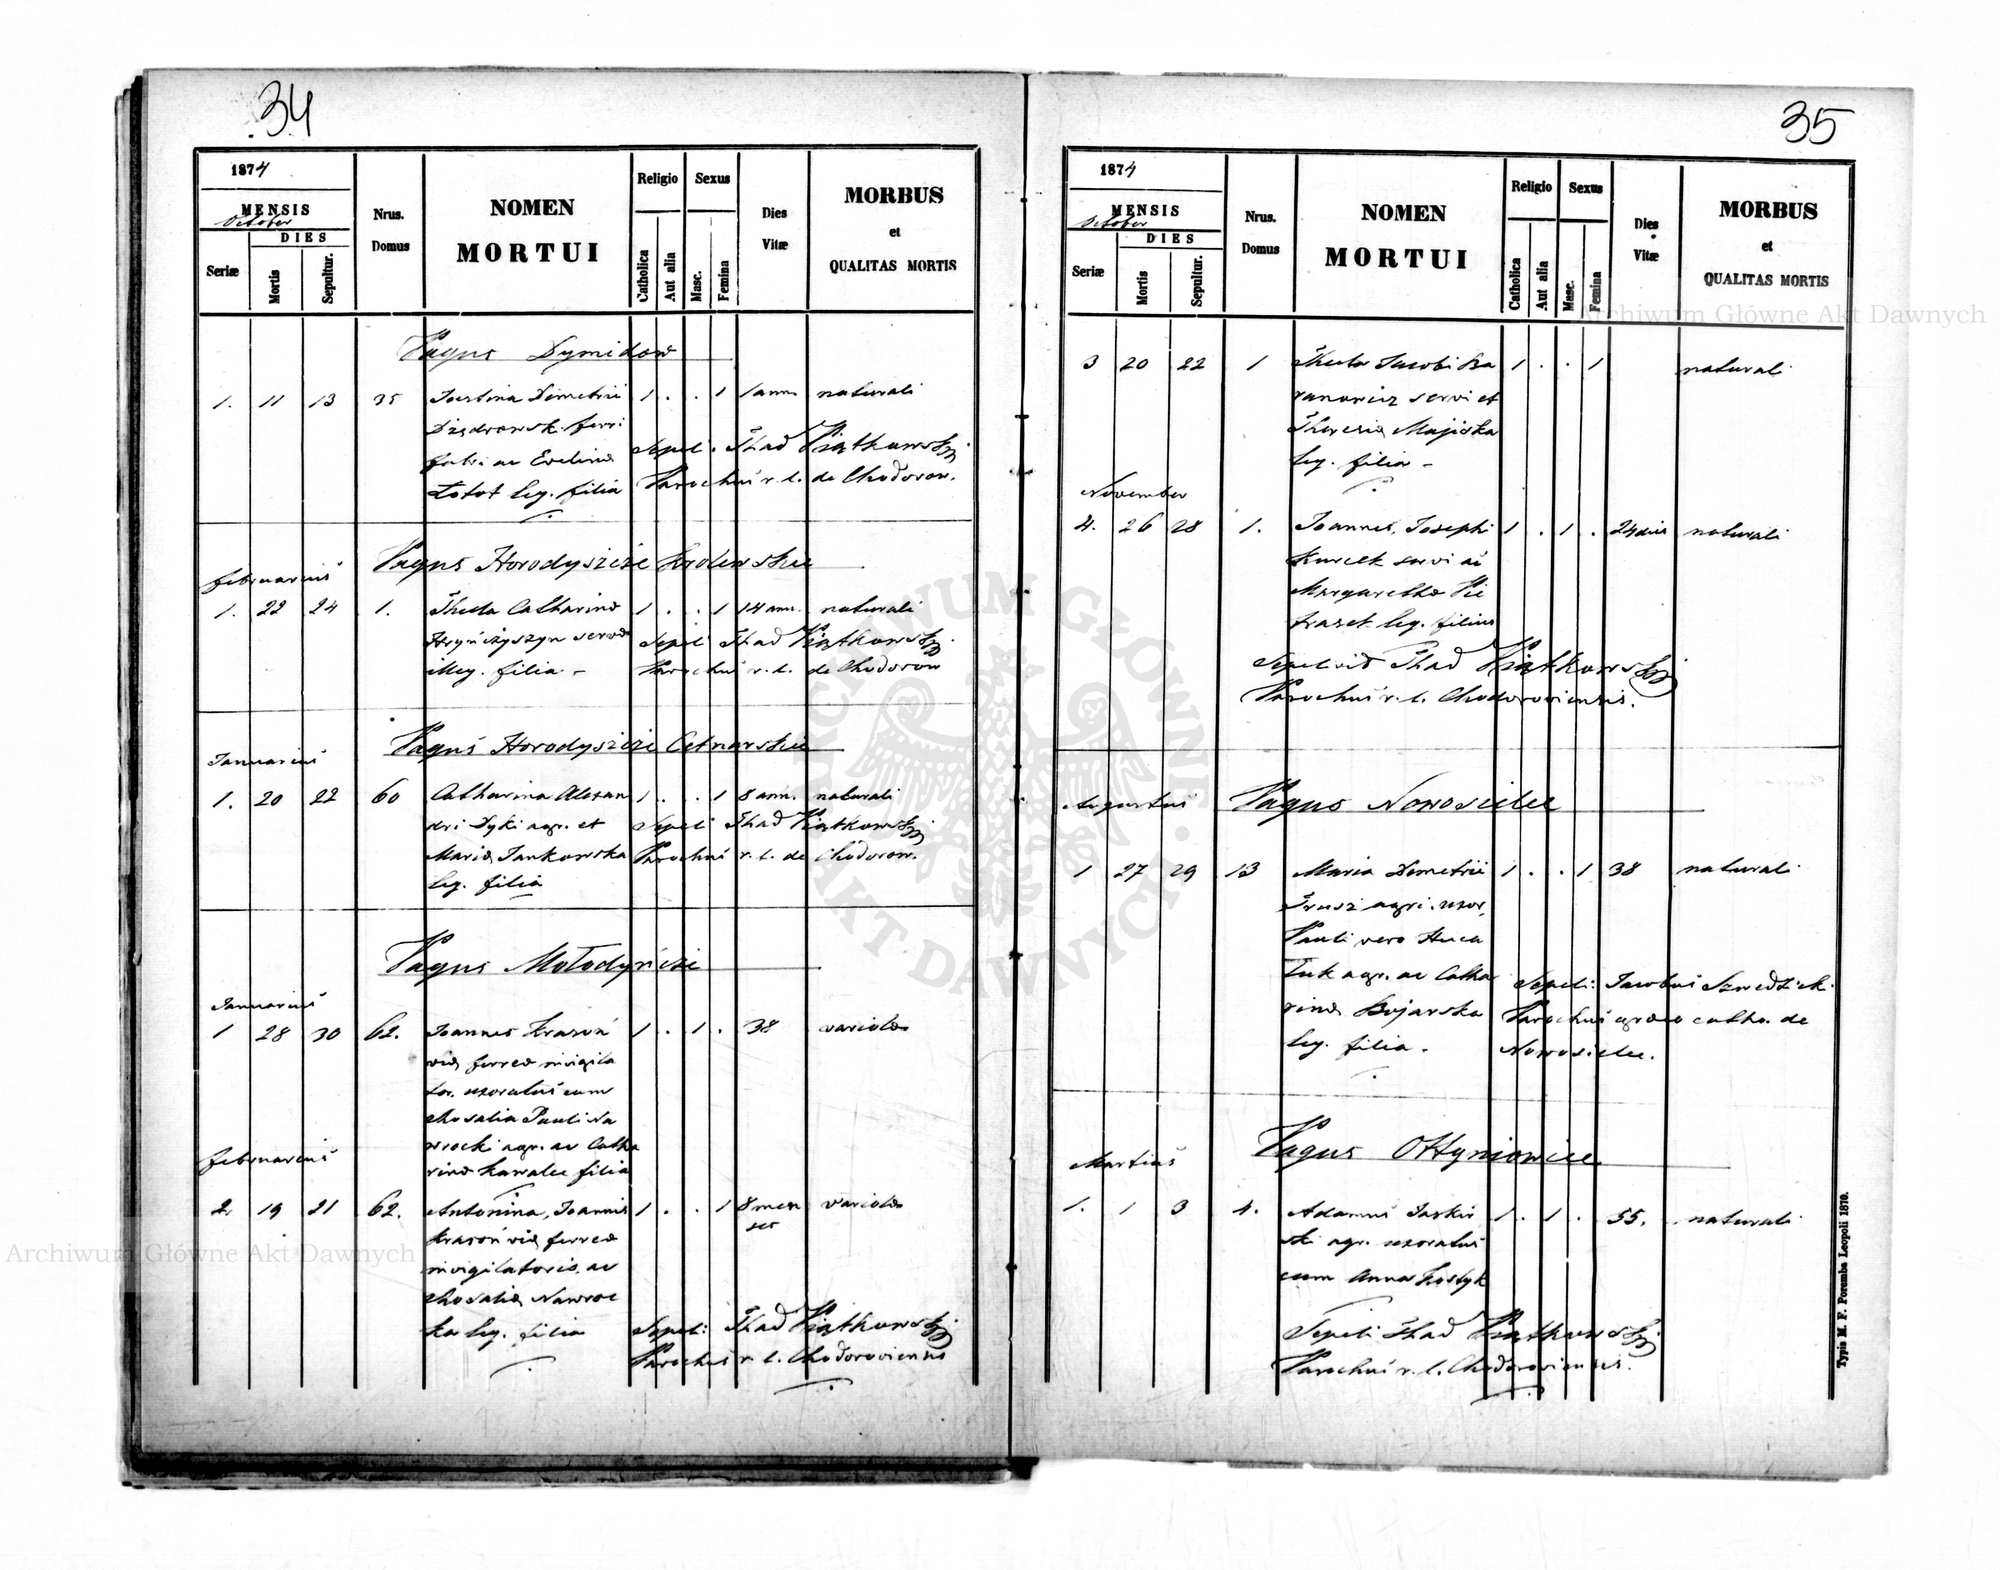 34
1874
MENSIS
October
DIES
Seriæ
Mortis
Sepultur.
Nrus.
Domus
NOMEN
MORTUI
Religio
Catholica
Aut alia
Sexus
Masc.
Femina
Dies
Vitæ
MORBUS
et
QUALITAS MORTIS
Pagus Dymidow
1. 11 13 35 Justina Demetrii 1 . . 1 1 ann. naturali
ferri
fabri ac Evelina Sepeli. Thad Piątkowski
leg. filia Parochus r. l. de Chodorow.
Pagus Horodyszcze Krolewskie
Februarius
1. 22 24 1. Thecla Catharina 1 . . 1 14 ann. naturali
Hryńczyszyn serva Sepeli Thad Piątkowski
illeg. filia – Parochus r. l. de Chodorow
Pagus Horodyszcze Cetnarskie
Januarius
1. 20 22 60 Catharina Alexan 1 . . 1 8 ann. naturali
dri Dyki agr. et Sepeli Thad Piątkowski
Maria Jankowska Parochus r. l. de Chodorow.
leg. filia
Pagus Mołodyńcze
Januarius
1 28 30 62. Joannes Krasoń 1 . 1 . 38 variola
via ferrea invigila
tor. uxoratus cum
Rosalia Pauli Na
wrocki agr. ac Catha
rina Kawalec filia
Februarius
2. 19 21 62. Antonina, Joannis 1 . . 1 8 men variola
ses
Krasoń via ferrea
invigilatoris, ac
Rosalia Nawroc
ka leg. filia Sepeli: Thad Piątkowski
Parochus r. l. Chodoroviensis
35
1874
MENSIS
October
DIES
Seriæ
Mortis
Sepultur.
Nrus.
Domus
NOMEN
MORTUI
Religio
Catholica
Aut alia
Sexus
Masc.
Femina
Dies
Vitæ
MORBUS
et
QUALITAS MORTIS
3 20 22 1 Thecla Jacobi Ba 1 . . 1 naturali
ranowicz servi et
Theresia Majiska
leg. filia –
November
4. 26 28 1. Joannes, Josephi 1 . 1 . 24 dies naturali
Kurcek servi ac
Margaretha Pie
traszek leg. filius
Sepelivit Thad Piątkowski
Parochus r. l. Chodoroviensis.
Augustus Pagus Nowosielce
1 27 29 13 Maria Demetrii 1 . . 1 38 naturali
agri. uxor,
Pauli vero Huca
luk agr. ac Catha Sepeli: Jacobus Szwedzicki
rina Bojarska Parochus graeco catho. de
leg. filia. Nowosielce.
Pagus Ottyniowice
Martius
1. 1 3 4. Adamus Jaskie 1 . 1 . 55. naturali
agr. uxoratus
cum Anna Kostyk
Sepeli Thad Piątkowski
Parochus r. l. Chodoroviensis.
Typis M. F. Poremba Leopoli 1870.
Archiwum Główne Akt Dawnych
Archiwum Główne Akt Dawnych
ARCHIWUM GŁÓWNE AKT DAWNYCH